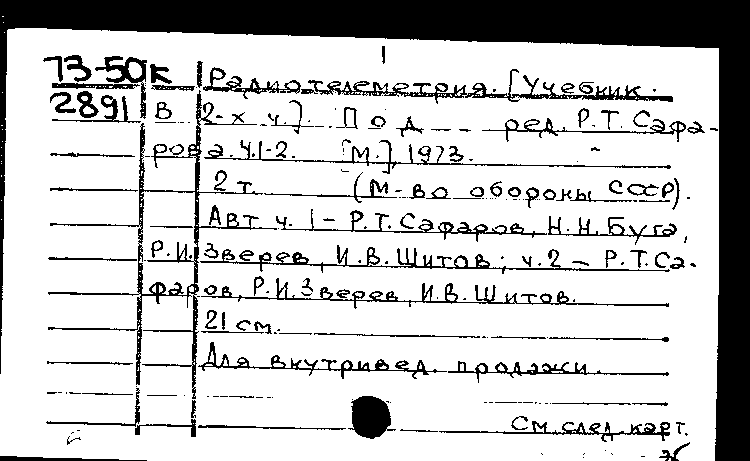 73-50к Радиотелеметрия. [Учебник.
2891 В 2-х ч.]. Под ред. Р.Т. Сафа-
рова. Ч.1-2. [М.], 1973.
2 т. (М-во обороны СССР).
Авт. ч. 1 - Р.Т. Сафаров, Н.Н. Буга,
Р.И. Зверев, И.В. Шитов; ч. 2 - Р.Т. Са-
фаров, Р.И. Зверев, И.В. Шитов.
21 см.
Для внутривед. продажи.
См. след. карт.